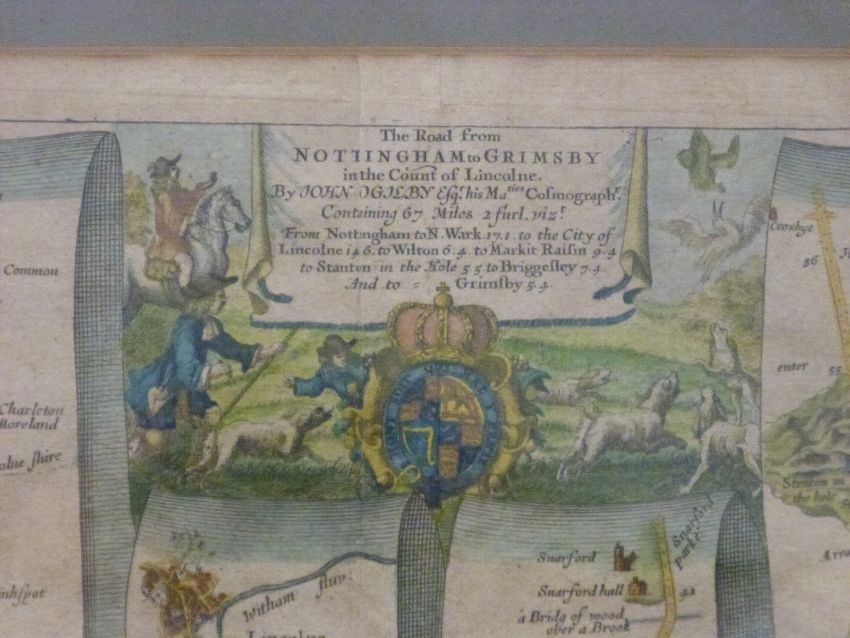 The Road from
NOTTINGHAM to GRIMSBY
in the Count of Lincolne.
By JOHN OGILBY Esqr. his Maties Cosmographr.
Containing 67 Miles 2 furl. vizt.
From Nottingham to N. Wark 17.1. to the City of
Lincolne 14 6. to Wilton 6.4. to Markit Raisin 9.4
to Stanton in the Hole 5 5 to Briggesley 7.4.
And to = Grimsby 5.4.
Common
Charleton
Moreland
shire
Croxbye
56
enter 55
Stenton in
the hole
HONI SOIT QUI MAL Y PENSE
Snarford
parke
Snarford
Snarford hall 42
a Bridg of wood
over a Brook
Witham fluv:
Lincolne